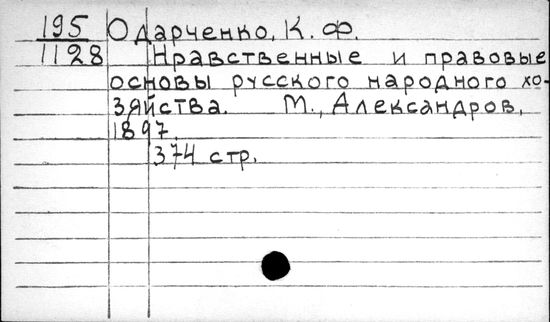 195 Одарченко, К. Ф.
1128 Нравственные и правовые
основы русского народного хо-
зяйства. М., Александров,
1897.
374 стр.